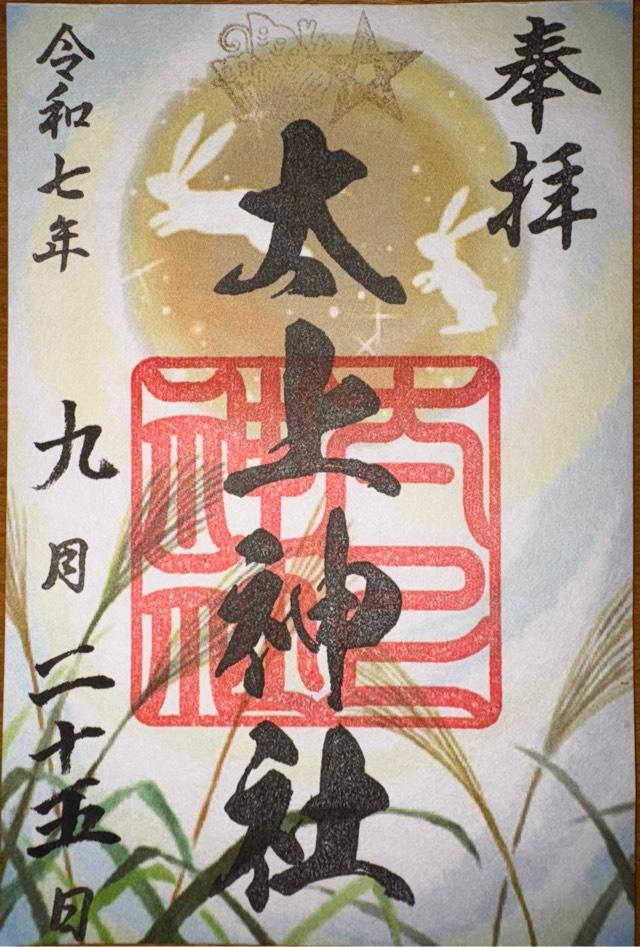 奉拝
太上神社
令和七年
九月二十五日